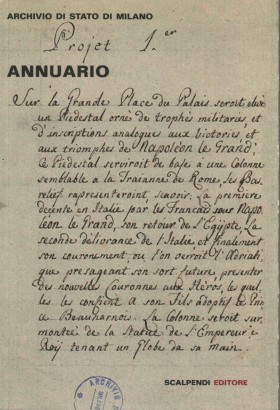 ARCHIVIO DI STATO DI MILANO
Projet 1.er
ANNUARIO
Sur la Grande Place du Palais seroit élevé
un Piedestal orné de trophés militaries, et
d'inscriptions analogues aux victories et
aux triomphes de Napoléon le Grand;
Ce Piedestal serviroit de base à une Colonne
semblable a la Traianne de Rome, ses Bas
relief rapresenteroint, scavoir; La première
décente en Italie par les Francais sous Napo
léon le Grand, son retour de l'Egypte, La
seconde délivrance de l'Italie et finalement
son couronement, ou l'on verroit l'Adriah,
que presageant son sort future, presenter
des nouvelles Couronnes aux Héros, le quel
les les confient a son Fils adoptif le Prin
ce Beauharnois. La Colonne seroit sur
montée de la Statue de l'Empereur e
Roÿ tenant un globe da sa main.
ARCHIVIO
SCALPENDI EDITORE